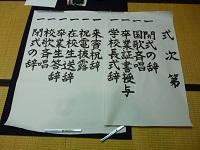 式次第
一 開式の辞
一 国歌斉唱
一 卒業証書授与
一 学校長式辞
一 来賓祝辞
一 祝電披露
一 在校生送辞
一 卒業生答辞
一 校歌斉唱
一 閉式の辞